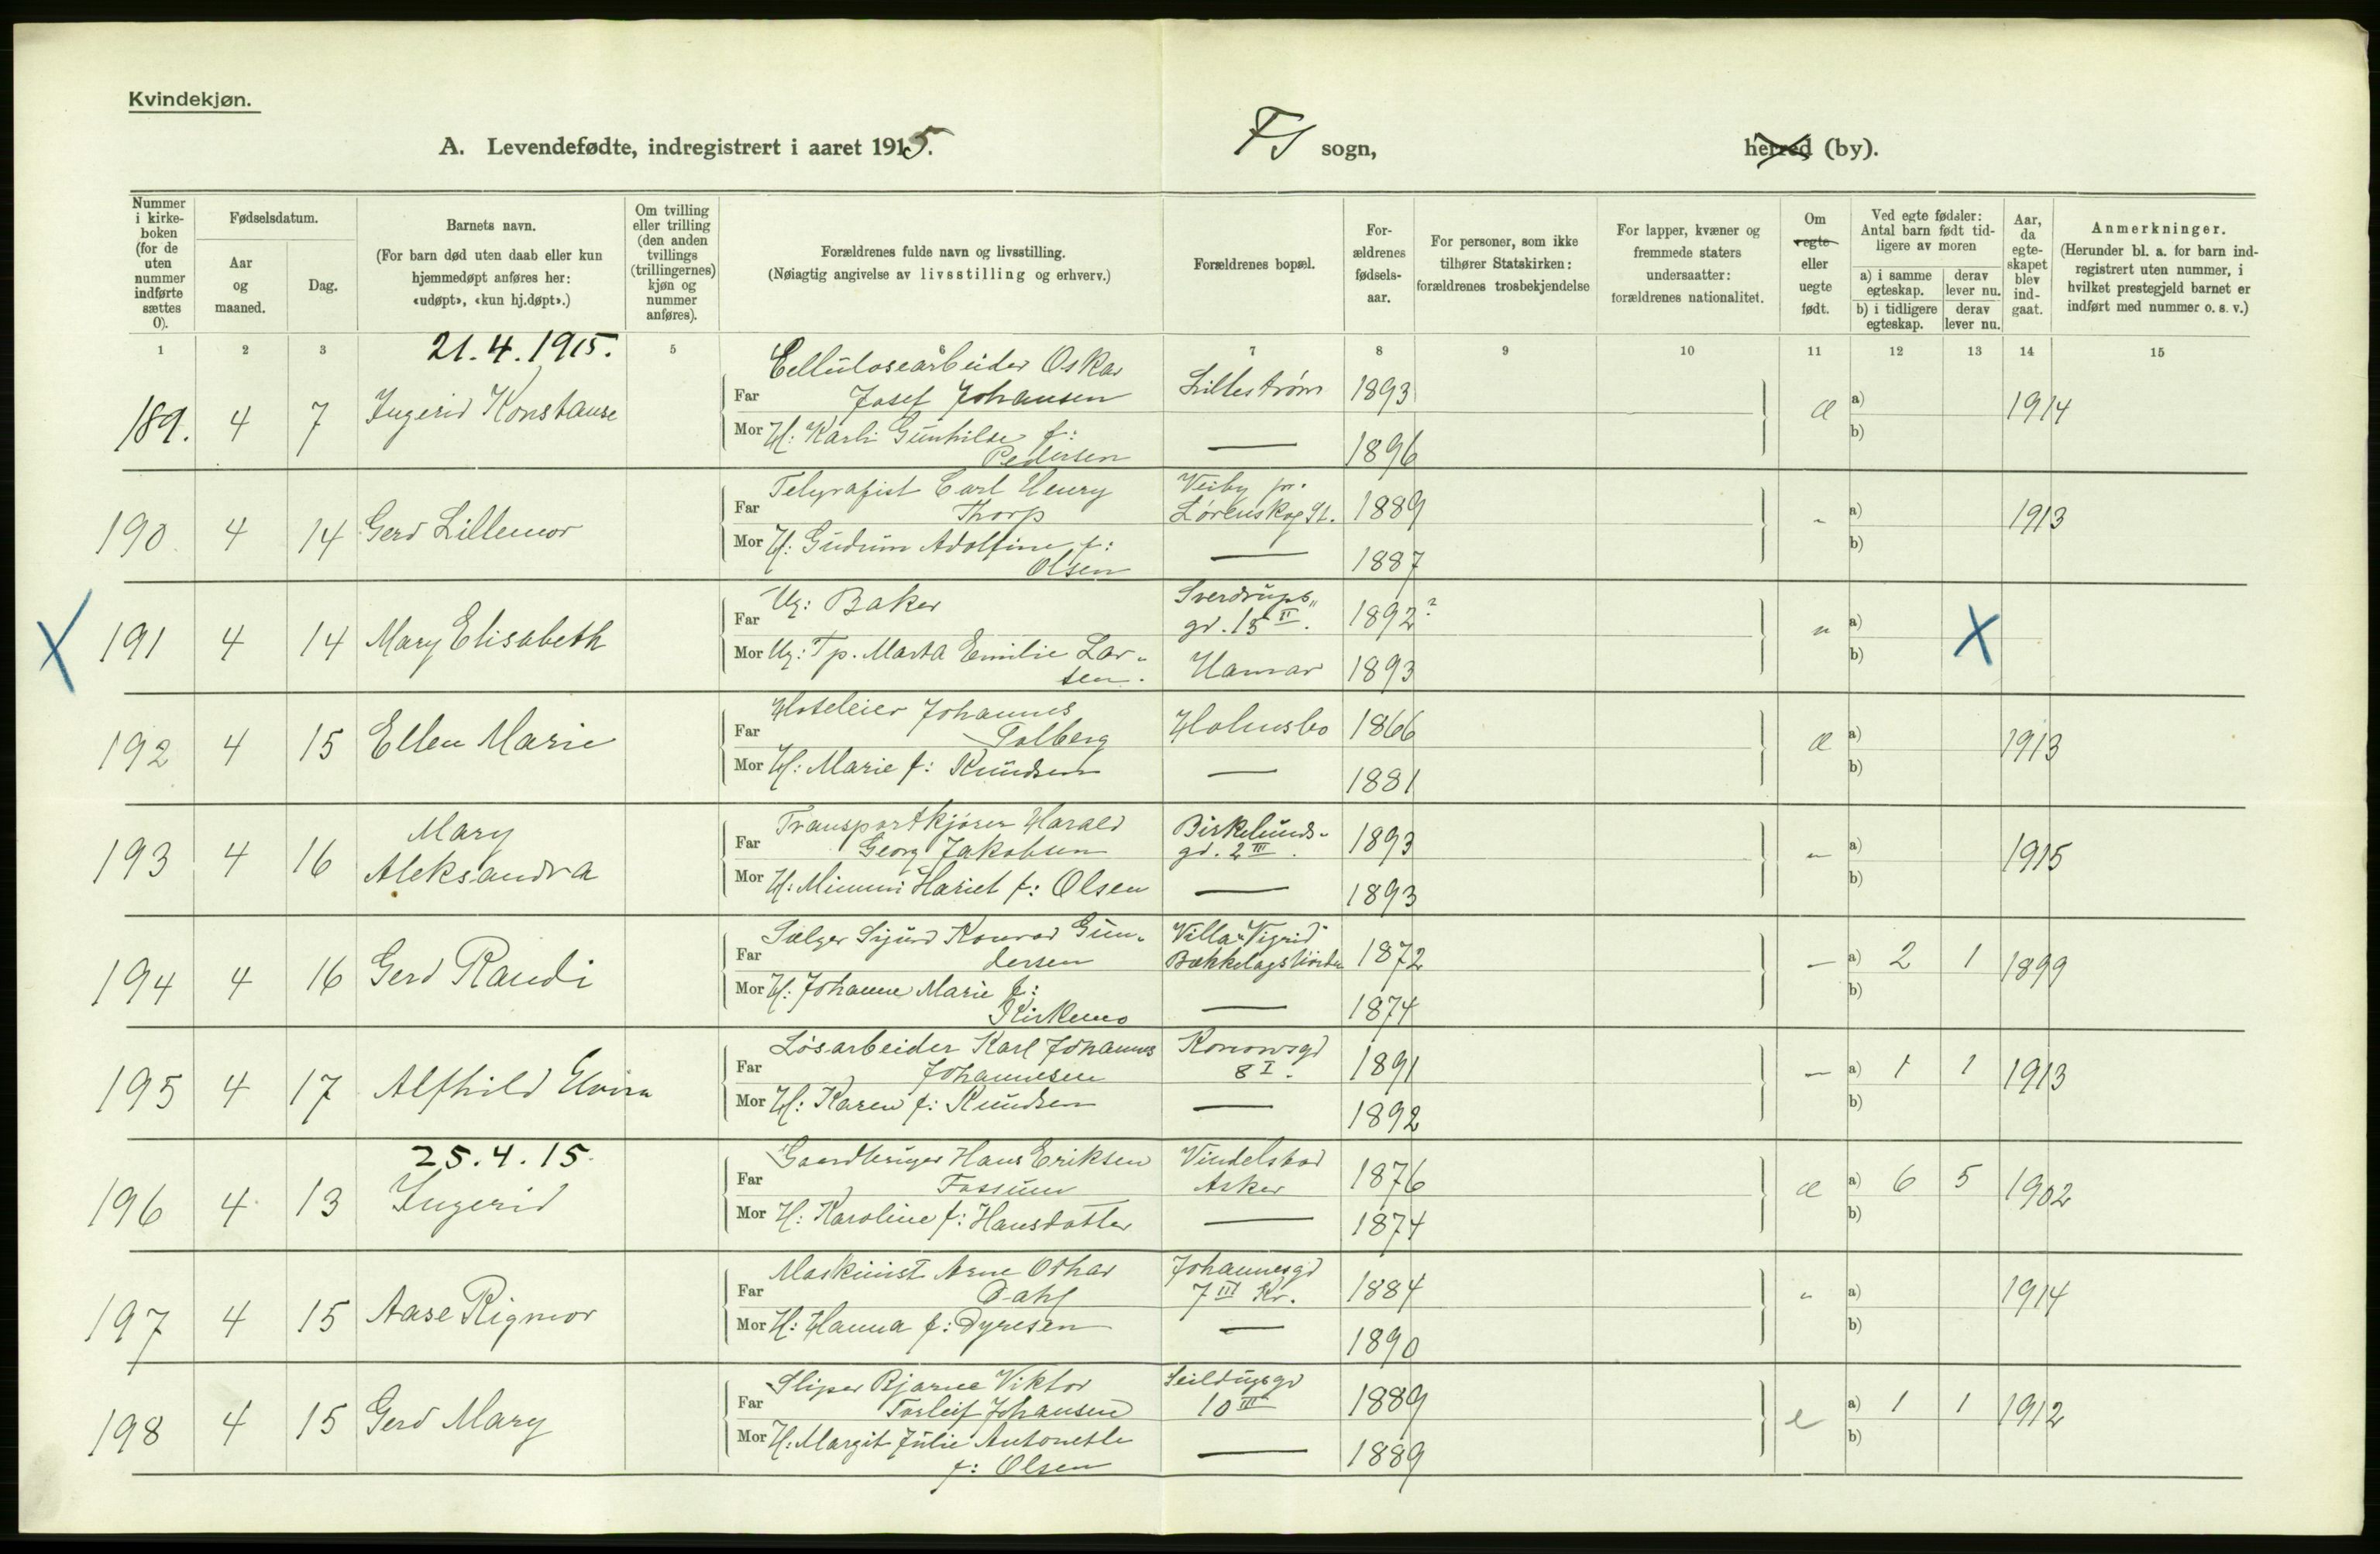 Kvindekjøn.
A. Levendefødte, indregistrert i aaret 1915. FS sogn, herred (by).
Nummer i kirke-boken (for de uten nummer indførte sættes 0).
Fødselsdatum.
Aar og maaned.
Dag.
Barnets navn.
(For barn død uten daab eller kun hjemmedøpt anføres her: «udøpt», «kun hj.døpt».)
Om tvilling eller trilling (den anden tvillings (trillingernes) kjøn og nummer anføres).
Forældrenes fulde navn og livsstilling.
(Nøiagtig angivelse av livsstilling og erhverv.)
Forældrenes bopæl.
For-ældrenes fødsels-aar.
For personer, som ikke tilhører Statskirken: forældrenes trosbekjendelse
For lapper, kvæner og fremmede staters undersaatter: forældrenes nationalitet.
Om egte eller uegte født.
Ved egte fødsler: Antal barn født tid-ligere av moren
a) i samme egteskap. derav lever nu.
b) i tidligere egteskap. derav lever nu.
Aar, da egte-skapet blev ind-gaat.
Anmerkninger.
(Herunder bl. a. for barn ind-registrert uten nummer, i hvilket prestegjeld barnet er indført med nummer o. s. v.)
1 2 3 5 6 7 8 9 10 11 12 13 14 15
21.4.1915.
Cellulosearbeider Oskar
189. 4 7 Ingerid Konstanse Far Josef Johansen Lillestrøm 1893 æ a) b) 1914
Mor H: Karli Gunhilde f: Pedersen — 1896
Telegrafist Carl Henry Veiby pr.
190 4 14 Gerd Lillemor Far Thorp Lørenskog St. 1889 " a) b) 1913
Mor H: Gudrun Adolfine f: Olsen — 1887
X 191 4 14 Mary Elisabeth Far Ug: Baker Sverdrups gd. 15 II. 1892? u a) b) X
Mor Ug: Tp. Marta Emilie Larsen. Hamar 1893
Hoteleier Johannes
192 4 15 Ellen Marie Far Tolberg Holmsbo 1866 æ a) b) 1913
Mor H: Marie f: Knudsen — 1881
Transportkjører Harald Birkelunds-
193 4 16 Mary Aleksandra Far Georg Jakobsen gd. 2 III. 1893 " a) b) 1915
Mor H: Mimmi Hariet f: Olsen — 1893
Sælger Sigurd Konrad Gun- Villa "Vigrid"
194 4 16 Gerd Randi Far dersen Bækkelagshøiden 1872 — a) 2 1 b) 1899
Mor H: Johanne Marie f: Kirkemo — 1874
Løsarbeider Karl Johannes Konowsgd
195 4 17 Alfhild Elvira Far Johannesen 8 I. 1891 — a) 1 1 b) 1913
Mor H: Karen f: Knudsen — 1892
25.4.15.
Gaardbruger Hans Eriksen
196 4 13 Ingerid Far Fossum Asker 1876 æ a) 6 5 b) 1902
Mor H: Karoline f: Hansdatter — 1874
Maskinist Arne Othar Johannesgd
197 4 15 Aase Rigmor Far Dahl 7 III Kr. 1884 " a) b) 1914
Mor H: Hanna f: Dyresen — 1890
Sliper Bjarne Viktor Seildugsgd
198 4 15 Gerd Mary Far Torleif Johansen 10 III 1889 e a) 1 1 b) 1912
Mor H: Margit Julie Antonette f: Olsen — 1889